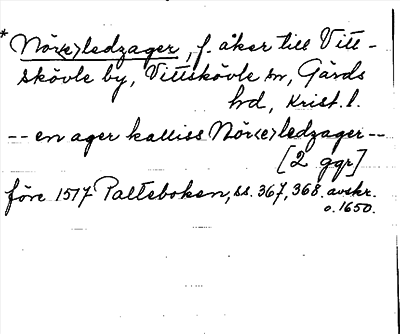 * Nör(e)ledzager, f. åker till Vitt-
skövle by, Vittskövle sn, Gärds
hd, Krist. l.
-- en ager kalliss Nör(e)ledzager --
[2 ggr]
före 1517 Palteboken, ss. 367, 368. avskr.
o. 1650.